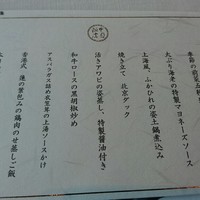 季節の前菜
大ぶり海老の特製マヨネーズソース
上海風ふかひれの姿土鍋煮込み
焼き立て 北京ダック
活きアワビの姿蒸し、特製醤油付き
和牛ロースの黒胡椒炒め
アスパラガス詰め衣笠茸の上湯ソースかけ
香港式 蓮の葉包みの鶏肉のせ蒸しご飯